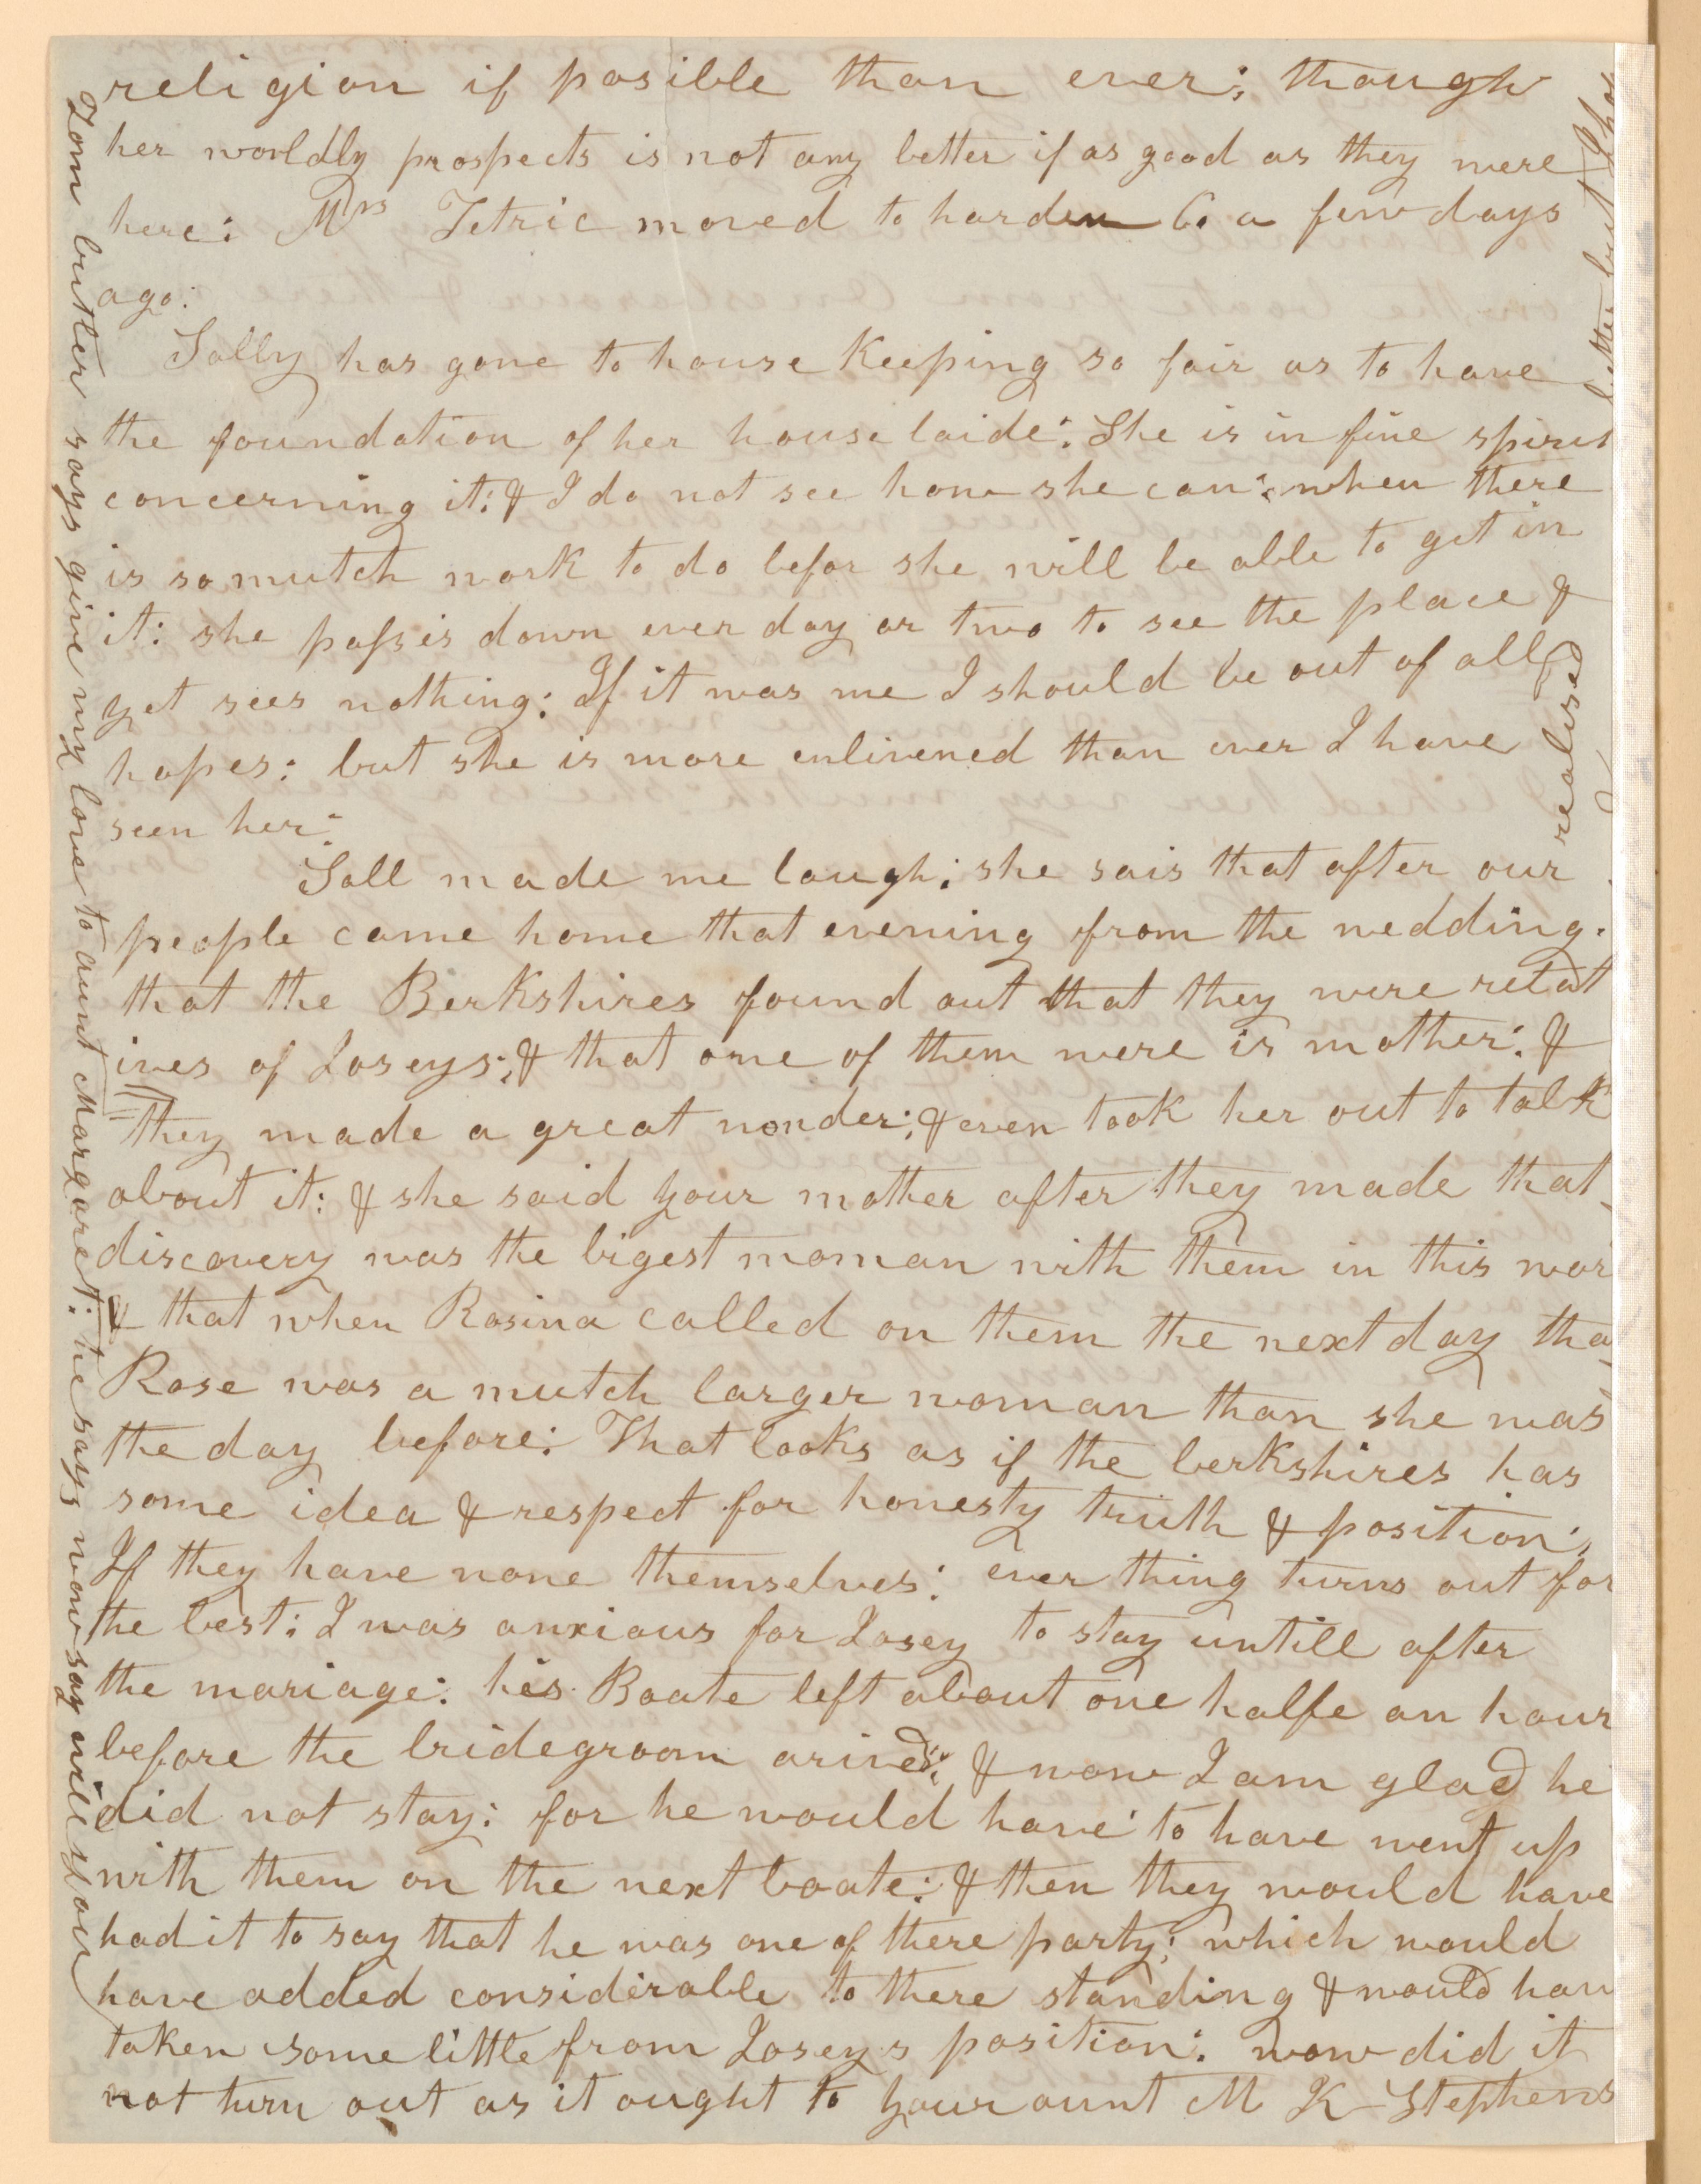 religion if posible than ever; though
her worldly prospects is not any better if as good as they were
here: Mrs Tetric moved to harden Co a few days
ago:
Sally has gone to house Keeping so fair as to have
the foundation of her house laide: She is in fine spirit
concerning it: & I do not see how she can: when there
is so mutch work to do befor she will be able to get in
it: she passes down ever day or two to see the place &
yet sees nothing: If it was me I should be out of all
hopes: but she is more enlivened than ever I have
seen her:
Sall made me laugh; she sais that after our
people came home that evening from the wedding.
that the Berkshires found out that they were relat
ives of Loseys; & that one of them were is mother: &
they made a great wonder; & even took her out to talk
about it: & she said your mother after they made that
discovery was the bigest woman with them in this wor
& that when Rosina called on them the next day tha
Rose was a mutch larger woman than she was
the day before: That looks as if the berkshires has
some idea & respect for honesty truth & position;
If they have none themselves: ever thing turns out for
the best: I was anxious for Losey to stay untill after
the mariage: his Boate left about one halfe an hour
before the bridegroom arived; & now I am glad he
did not stay: for he would have to have went up
with them on the next boate: & then they would have
had it to say that he was one of there party; which would
have added considerable to there standing & would hav
taken some little from Loseys position: now did it
not turn out as it ought to your aunt M K Stephens
Tom butler says give my love to aunt Margaret: he says now say will you
realised
letter but I hop